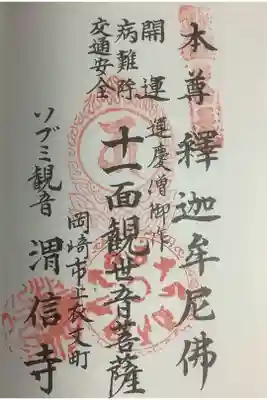 本尊釋迦牟尼佛
運慶僧御作
十一面観世音菩薩
開運
病難除
交通安全
岡崎市上衣文町
ソブミ観音
渭信寺